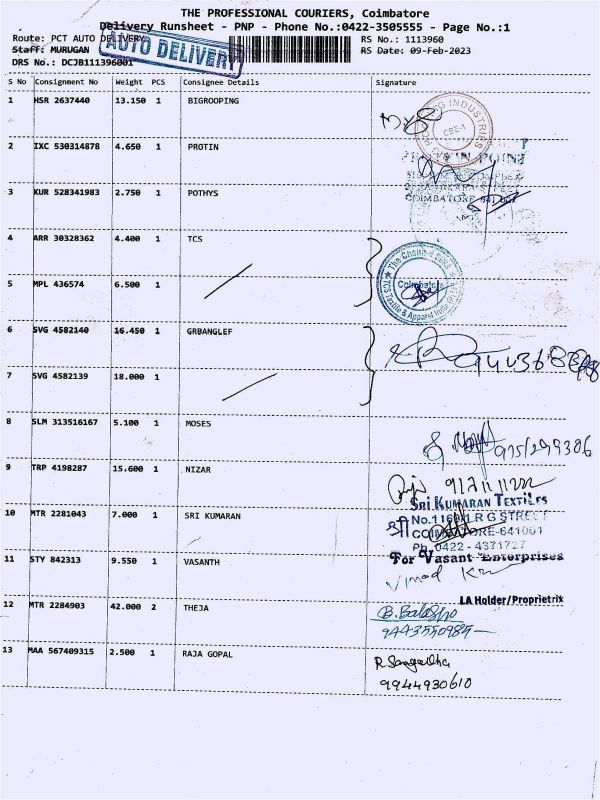 THE PROFESSIONAL COURIERS, Coimbatore
Delivery Runsheet - PNP - Phone No.:0422-3505555 - Page No.:1
Route: PCT AUTO DELIVERY
RS No.: 1113960
AUTO DELIVERY
Staff: MURUGAN
RS Date: 09-Feb-2023
DRS No.: DCJB111396001
S No Consignment No Weight PCS Consignee Details Signature
1 HSR 2637440 13.150 1 BIGROOPING
INDUSTRIES
CBE-1
2 IXC 530314878 4.650 1 PROTIN
3 KUR 528341983 2.750 1 POTHYS
COIMBATORE
4 ARR 30328362 4.400 1 TCS
The Chennai Silks
Coimbatore
TCS Textile & Apparel
5 MPL 436574 6.500 1
6 SVG 4582140 16.450 1 GRBANGLEF
7 SVG 4582139 18.000 1
8 SLM 313516167 5.100 1 MOSES
9 TRP 4198287 15.600 1 NIZAR
SRI KUMARAN TEXTILES
10 MTR 2281043 7.000 1 SRI KUMARAN
R G STREET
COIMBATORE-641001
PH 0422 - 4371727
11 STY 842313 9.550 1 VASANTH
For Vasant Enterprises
Vinod
LA Holder/Proprietrix
12 MTR 2284903 42.000 2 THEJA
9443550985
13 MAA 567409315 2.500 1 RAJA GOPAL
R. Sangeetha
9944930610